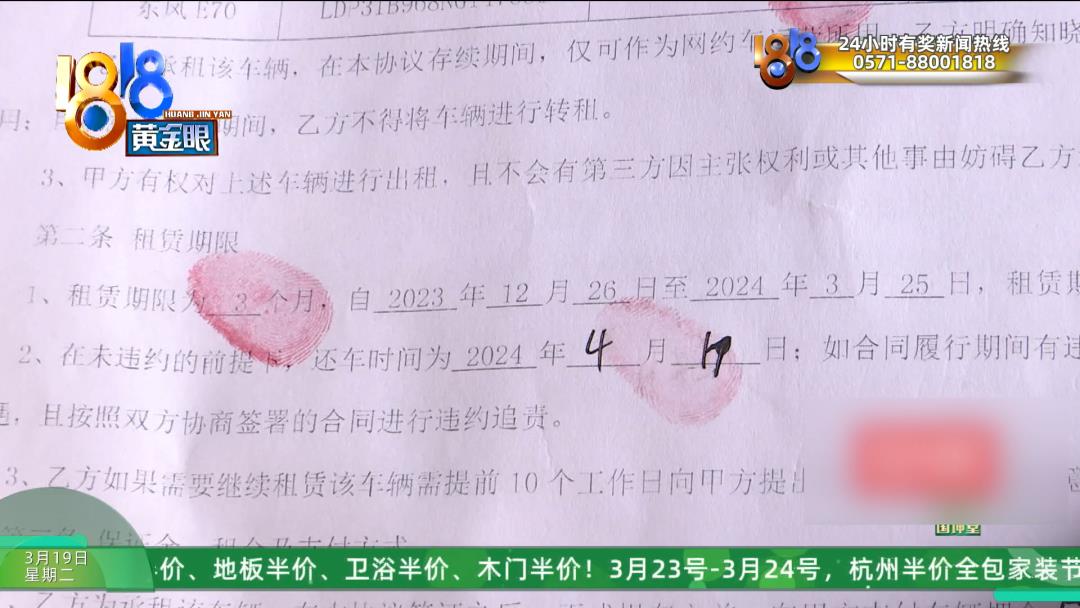 东风E70
承租该车辆，在本协议存续期间，仅可作为网约车
乙方明确知晓
期间，乙方不得将车辆进行转租。
3、甲方有权对上述车辆进行出租，且不会有第三方因主张权利或其他事由妨碍乙方
第二条 租赁期限
1、租赁期限为 3 个月，自 2023 年 12 月 26 日至 2024 年 3 月 25 日，租赁期
2、在未违约的前提下，还车时间为 2024 年 4 月 日；如合同履行期间有违
，且按照双方协商签署的合同进行违约追责。
3、乙方如果需要继续租赁该车辆需提前 10 个工作日向甲方提出
1818
HUANG JIN YAN
黄金眼
1818
24小时有奖新闻热线
0571-88001818
国坤堂
3月19日
星期二
价、地板半价、卫浴半价、木门半价！3月23号-3月24号，杭州半价全包家装节